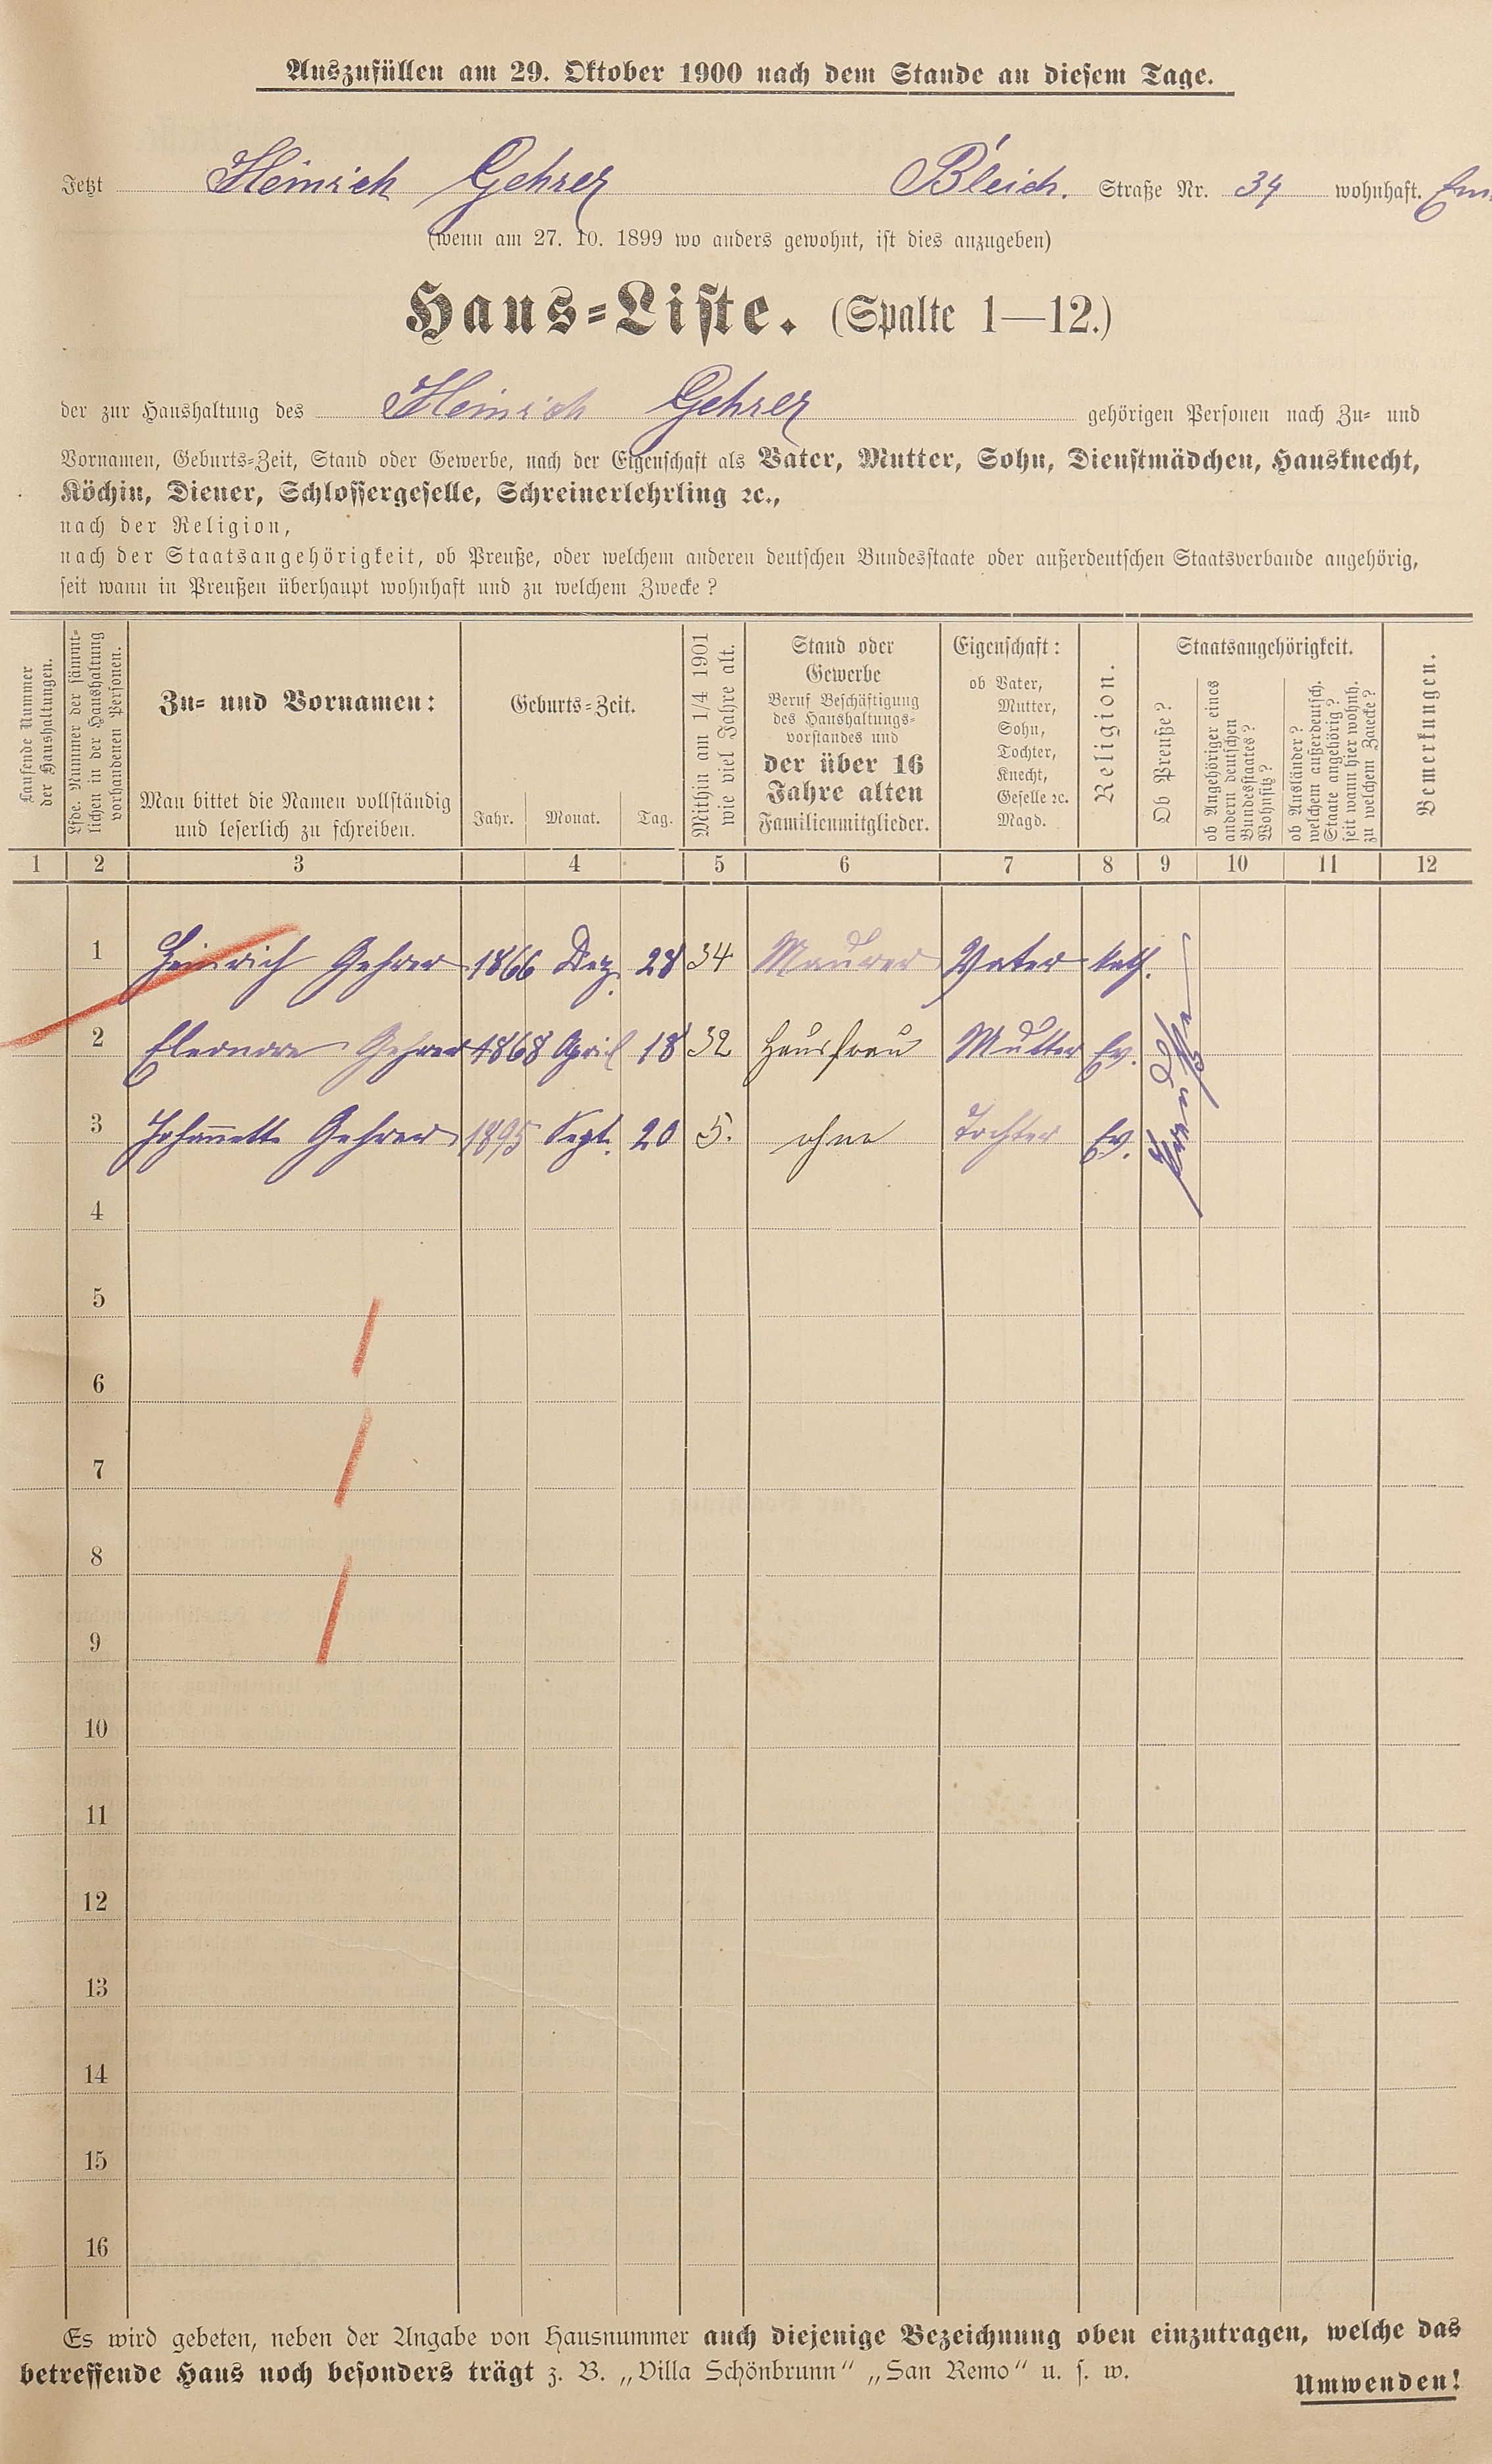 Auszufüllen am 29. Oktober 1900 nach dem Stande an diesem Tage.
Jetzt Heinrich Gehrer Bleich. Straße Nr. 34 wohnhaft.
(wenn am 27. 10. 1899 wo anders gewohnt, ist dies anzugeben)
Haus=Liste. (Spalte 1—12.)
der zur Haushaltung des Heinrich Gehrer gehörigen Personen nach Zu= und
Vornamen, Geburts=Zeit, Stand oder Gewerbe, nach der Eigenschaft als Vater, Mutter, Sohn, Dienstmädchen, Hausknecht,
Köchin, Diener, Schlossergeselle, Schreinerlehrling ꝛc.,
nach der Religion,
nach der Staatsangehörigkeit, ob Preuße, oder welchem anderen deutschen Bundesstaate oder außerdeutschen Staatsverbande angehörig,
seit wann in Preußen überhaupt wohnhaft und zu welchem Zwecke?
Laufende Nummer
der Haushaltungen.
Lfde. Nummer der sämmt=
lichen in der Haushaltung
vorhandenen Personen.
Zu= und Vornamen:
Man bittet die Namen vollständig
und leserlich zu schreiben.
Geburts=Zeit.
Jahr. Monat. Tag.
Mithin am 1/4 1901
wie viel Jahre alt.
Stand oder
Gewerbe
Beruf Beschäftigung
des Haushaltungs=
vorstandes und
der über 16
Jahre alten
Familienmitglieder.
Eigenschaft:
ob Vater,
Mutter,
Sohn,
Tochter,
Knecht,
Geselle ꝛc.
Magd.
Religion.
Staatsangehörigkeit.
Ob Preuße?
ob Angehöriger eines
andern deutschen
Bundesstaates?
Wohnsitz?
ob Ausländer?
welchem außerdeutsch.
Staate angehörig?
seit wann hier wohnh.
zu welchem Zwecke?
Bemerkungen.
1 2 3 4 5 6 7 8 9 10 11 12
1 Heinrich Gehrer 1866 Dez. 28 34 Maurer Vater kath.
2 Eleonore Gehrer 1868 April 18 32 Hausfrau Mutter Ev.
3 Johannette Gehrer 1895 Sept. 20 5. ohne Tochter Ev.
Preuße
4
5
6
7
8
9
10
11
12
13
14
15
16
Es wird gebeten, neben der Angabe von Hausnummer auch diejenige Bezeichnung oben einzutragen, welche das
betreffende Haus noch besonders trägt z. B. „Villa Schönbrunn" „San Remo" u. s. w.
Umwenden!